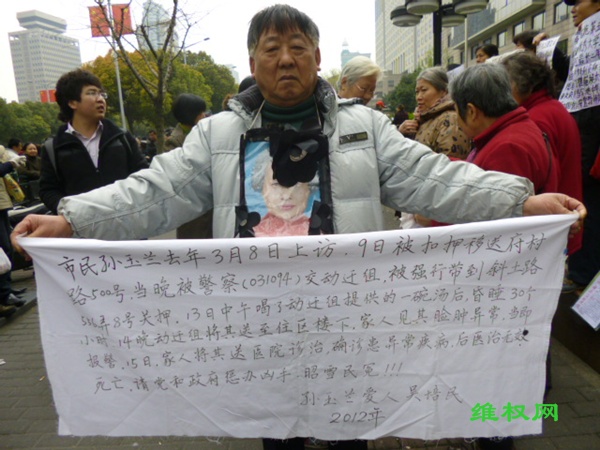 市民孙玉兰去年3月8日上访，9日被扣押移送府村
路500号．当晚被警察(031094)交动迁组，被强行带到斜土路
516弄8号关押．13日中午喝了动迁组提供的一碗汤后，昏睡30个
小时，14晚动迁组将其送至住区楼下，家人见其脸肿异常，当即
报警，15日，家人将其送医院诊治，确诊患异常疾病，后医治无效
死亡，请党和政府惩办凶手，昭雪民冤!!!
孙玉兰爱人 吴培民
2012年
维权网